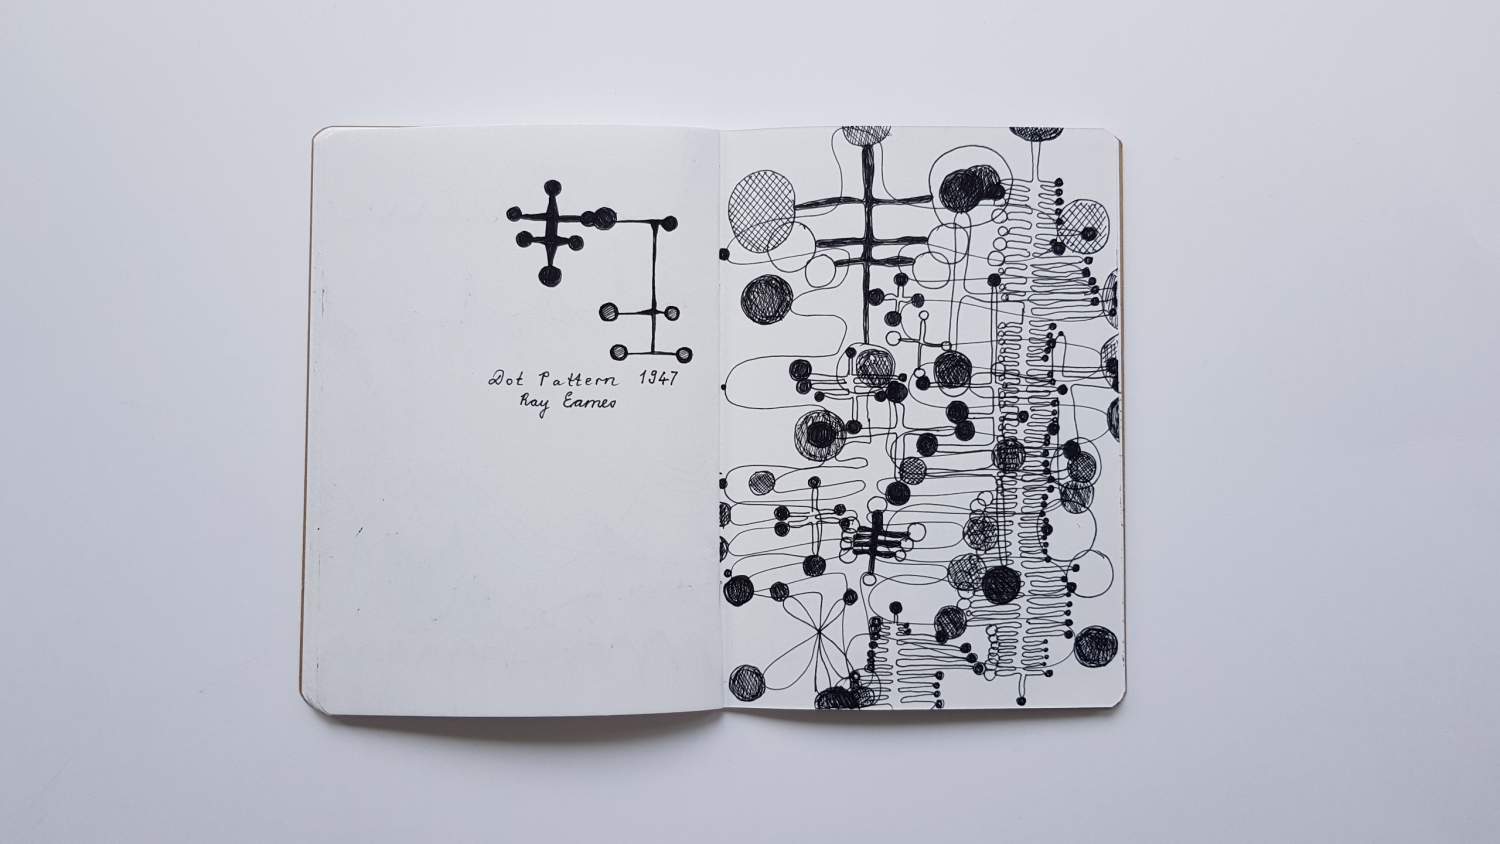 Dot Pattern 1947
Ray Eames